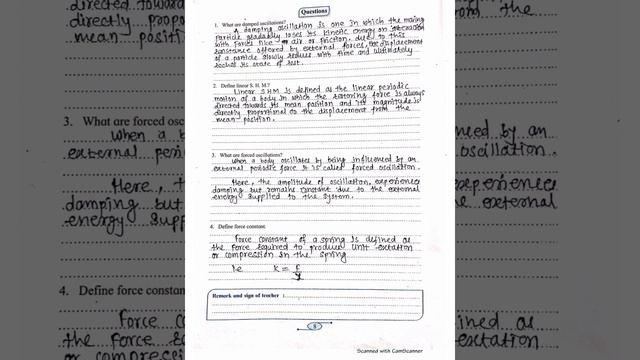 Questions
1. What are damped oscillations?
A damping oscillation is one in which the moving
particle gradually loses its kinetic energy on interaction
with forces like air or friction. due to this
resistance offered by external forces, the displacement
of a particle slowly reduces with time and ultimately
its state of rest.
2. Define linear S. H. M.?
Linear S.H.M is defined as the linear periodic
motion of a body in which the restoring force is always
directed towards its mean position and its magnitude is
directly proportional to the displacement from the
mean position.
3. What are forced oscillations?
When a body oscillates by being influenced by an
external periodic force it is called forced oscillation.
Here, the amplitude of oscillation, experiences
damping but remains constant due to the external
energy supplied to the system.
4. Define force constant
Force constant of a spring is defined as
the force required to produce unit extation
or compression in the spring
ie K = F/y
Remark and sign of teacher :
8
Scanned with CamScanner
directed toward
directly propor
mean positi
3. What are forced os
When a b
external peri
Here, t
damping but
energy supp
4. Define force constan
Force c
the force
or compressi
the
need by an
oscillation.
experiences
external
ined as